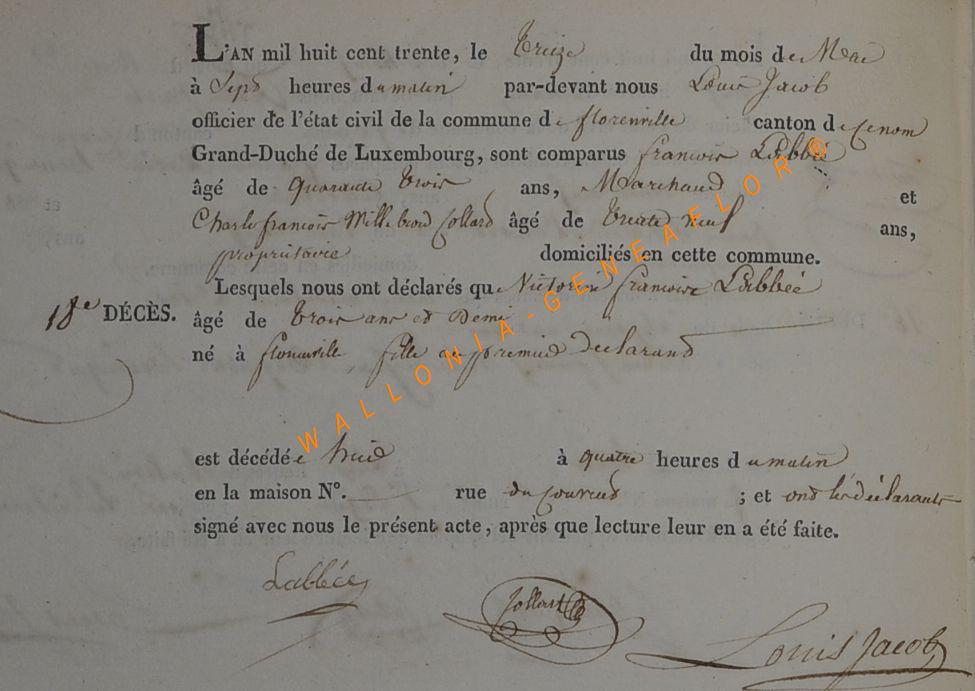 L'AN mil huit cent trente, le treize du mois de Mai
à Sept heures du matin par-devant nous Louis Jacob
officier de l'état civil de la commune de florenville canton de
Grand-Duché de Luxembourg, sont comparus francois Labbée
âgé de quarante trois ans, Marchand et
Charle francois Willebrord Collard âgé de trente neuf ans,
propriétaire domiciliés en cette commune.
Lesquels nous ont déclarés que Victorine francoise Labbée
18e DÉCÈS.
âgé de trois ans et demi
né à florenville, fille du premier declarant
est décédée à quatre heures du matin
en la maison N°. rue du ; et ont les déclarants
signé avec nous le présent acte, après que lecture leur en a été faite.
Labbée
Collard
Louis Jacob
WALLONIA-GENEAFLOR®